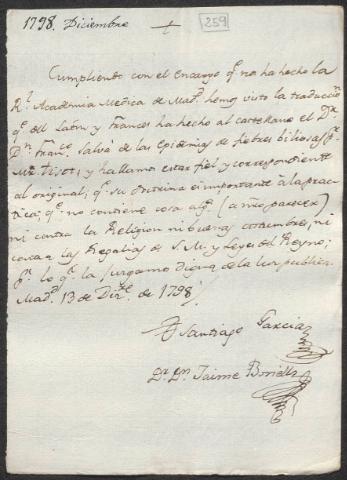 1798. Diciembre
259
Cumpliendo con el Encargo q.e nos ha hecho la
R.l Academia Medica de Mad.d hemos visto la traduccion
q.e del Latin, y Frances ha hecho al castellano el D.r
D.n Fran.co Salvá de las Epidemias de fiebres biliosas p.r
Mr. Tissot; y hallamos estar fiel y correspondiente
al original; q.e su doctrina es importante à la prac-
tica; q.e no contiene cosa alg.a (a nr̃o parecer)
ni contra la Religion ni buenas costumbres, ni
contra las Regalias de S. M. y Leyes del Reyno;
p.r lo q.e la juzgamos digna de la luz publica.
Mad.d 13 de Dic.re de 1798
Santiago Garcia
D.r D.n Jaime Bonells